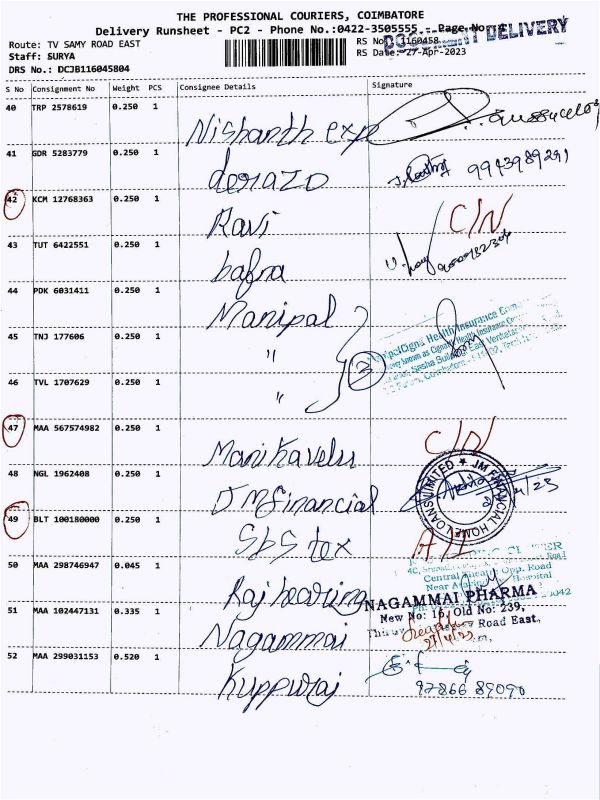 THE PROFESSIONAL COURIERS, COIMBATORE
Delivery Runsheet - PC2 - Phone No.:0422-3505555 Page No
DOCUMENT DELIVERY
Route: TV SAMY ROAD EAST RS No 1160458
Staff: SURYA RS Date: 27-Apr-2023
DRS No.: DCJB116045804
S No Consignment No Weight PCS Consignee Details Signature
40 TRP 2578619 0.250 1 Nishanth exp
41 GDR 5283779 0.250 1 derazo 9943989291
42 KCM 12768363 0.250 1 Ravi C/N
43 TUT 6422551 0.250 1 bafna
44 PDK 6031411 0.250 1 Manipal
45 TNJ 177606 0.250 1 "
46 TVL 1707629 0.250 1 "
3
Health Insurance
47 MAA 567574982 0.250 1 Manikavelu C/N
48 NGL 1962408 0.250 1 JM financial
JM FINANCIAL HOME LOANS LIMITED
49 BLT 100180000 0.250 1 Sbs tex
50 MAA 298746947 0.045 1 Raj bearing
Central Theatre Opp. Road
Hospital
51 MAA 102447131 0.335 1 Nagammai
NAGAMMAI PHARMA
New No: 16, Old No: 239,
Road East,
52 MAA 299031153 0.520 1 Kuppuraj
92866 89090